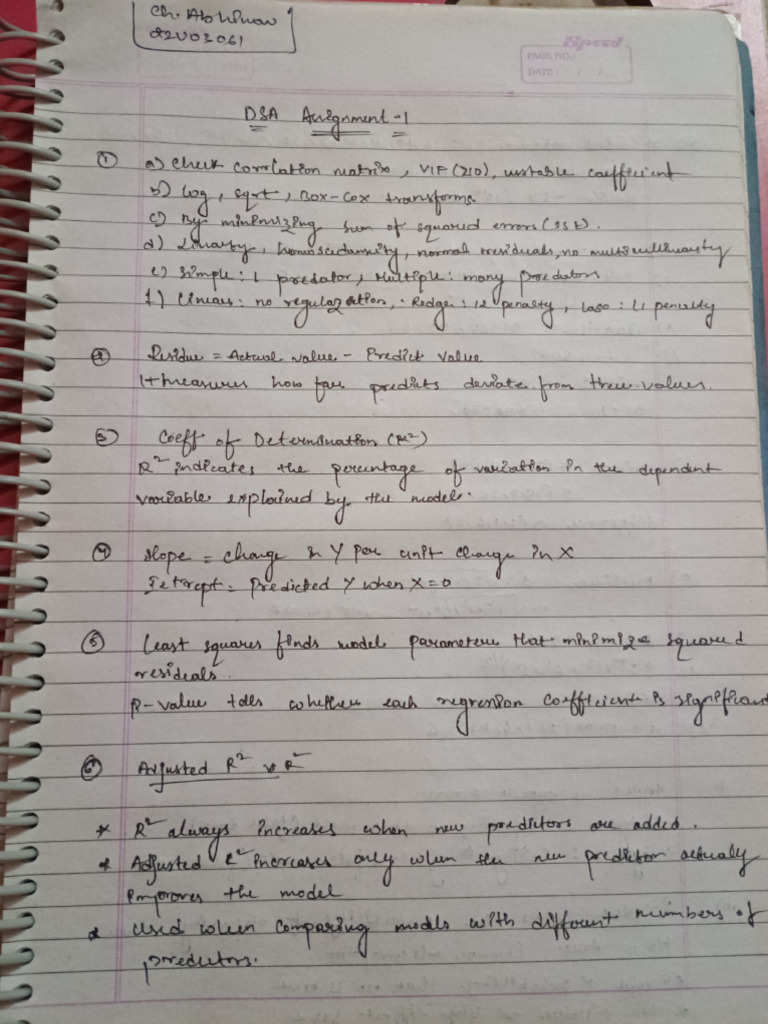 Ch. Abhinav
22V03061
Zipeed
PAGE NO.:
DATE: / /
DSA Assignment-1
① a) Check correlation matrix, VIF (>10), unstable coefficient
b) Log, sqrt, Box-Cox transforms.
c) By minimizing sum of squared errors (SSE).
d) Linearity, homoscedansity, normal residuals, no multicollinearity
e) Simple: 1 predator, Multiple: many predators
f) Linear: no regularization, Ridge: L2 penalty, Laso: L1 penalty
② Residue = Actual value - Predict value
It measures how far predicts deviate from true values.
③ Coeff of Determination (R²)
R² indicates the percentage of variation in the dependent
variable explained by the model.
④ slope = change in Y per unit change in X
Intercept = Predicted Y when X=0
⑤ Least squares finds model parameters that minimize squared
residuals.
P-value tells whether each regression coefficient is significant
⑥ Adjusted R² vs R²
* R² always increases when new predictors are added.
* Adjusted R² increases only when the new predictor actualy
improves the model
* Used when comparing models with different numbers of
predictors.